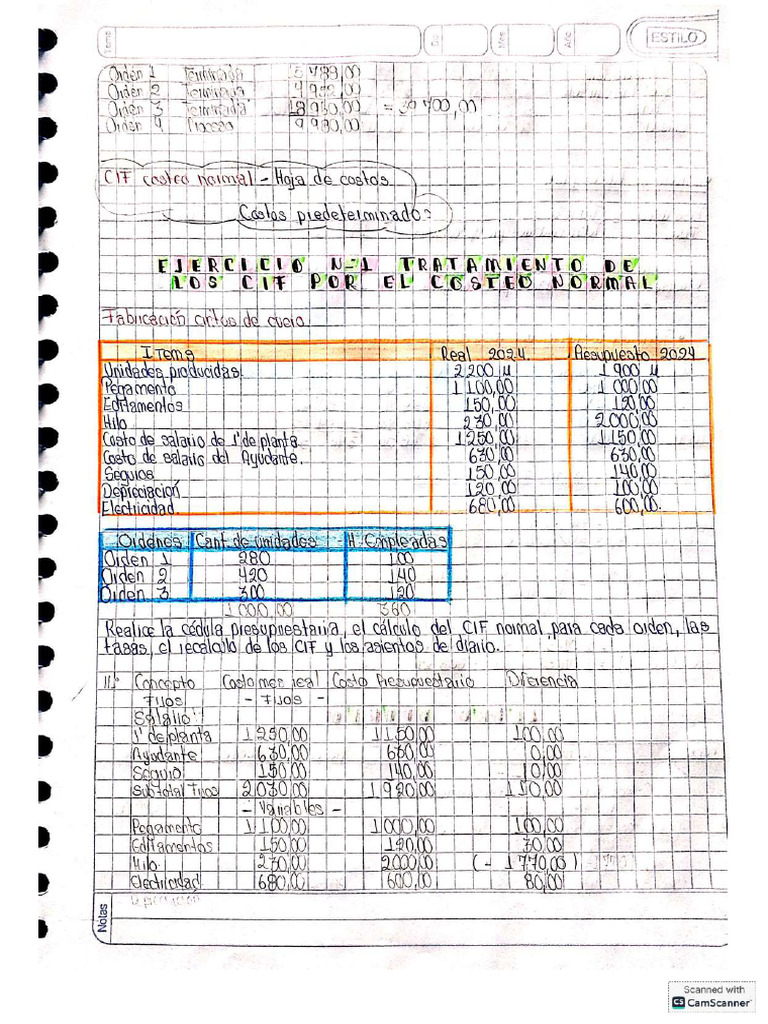 Tema
Día
Mes
Año
ESTILO
Orden 1 Terminada 3 789,00
Orden 2 Terminada
Orden 3 Terminada = 30 700,00
Orden 4 Proceso 9 980,00
CIF costeo normal - Hoja de costos
Costos predeterminado:
EJERCICIO N-1 TRATAMIENTO DE
LOS CIF POR EL COSTEO NORMAL
Fabricación cintos de cuero.
Items Real 2024 Presupuesto 2024
Unidades producidas. 2 200 µ 1 900 µ
Pegamento 1 100,00 1 000,00
Editamentos 150,00 120,00
Hilo 230,00 2000,00
Costo de salario de J' de planta. 1 250,00 1 150,00
Costo de salario del Ayudante. 630,00 630,00
Seguros 150,00 140,00
Depreciación 120,00 100,00
Electricidad 680,00 600,00.
Ordenes Cant de unidades H. Empleadas
Orden 1 280 100
Orden 2 420 140
Orden 3 300 120
1 000,00 360
Realice la cédula presupuestaria, el cálculo del CIF normal, para cada orden, las
tasas, el recalculo de los CIF y los asientos de diario.
Concepto Costo mes real Costo Presupuestario Diferencia
Fijos - Fijos -
Salario:
J' de planta 1 250,00 1 150,00 100,00
Ayudante 630,00 630,00 0,00
Seguro 150,00 140,00 10,00
Subtotal Fijos 2 030,00 1 920,00 110,00
- Variables -
Pegamento 1 100,00 1 000,00 100,00
Editamentos 150,00 120,00 30,00
Hilo. 230,00 2000,00 (- 1 770,00)
Electricidad 680,00 600,00 80,00
Notas
Scanned with
CS CamScanner